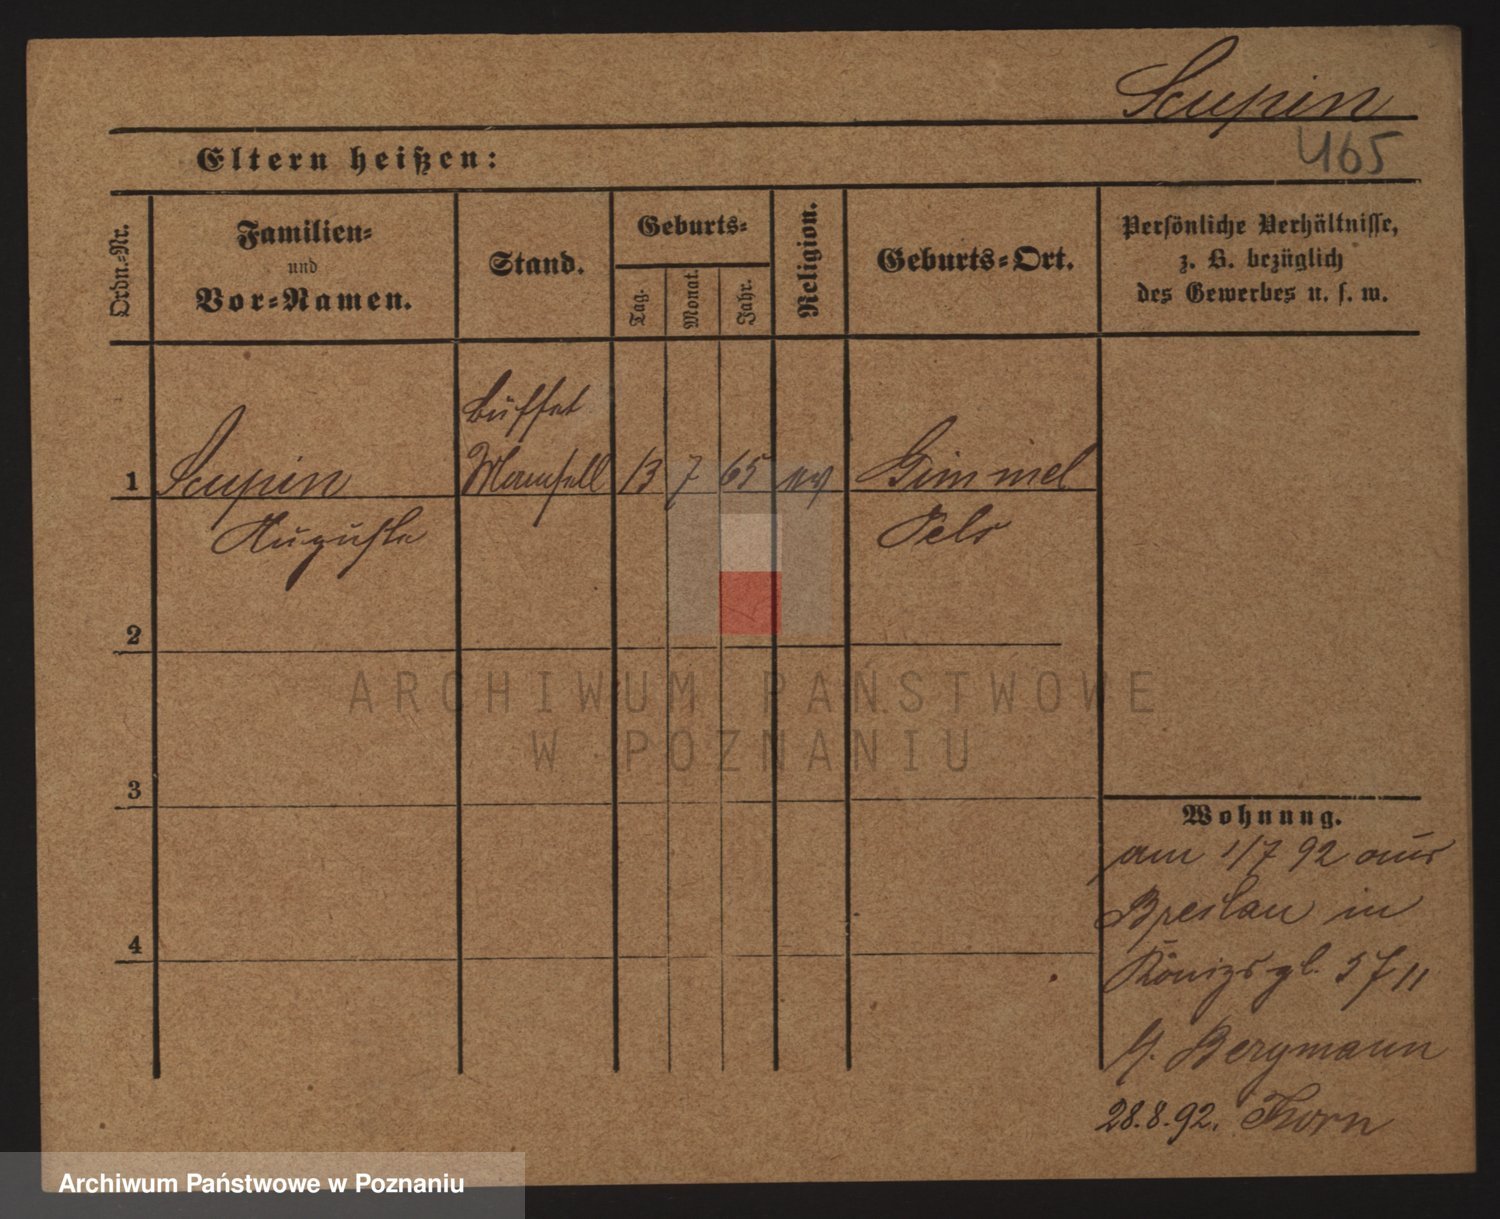 Scupin
465
Eltern heißen:
Ordn.-Nr.
Familien-
und
Vor-Namen.
Stand.
Geburts-
Tag.
Monat.
Jahr.
Religion.
Geburts-Ort.
Persönliche Verhältnisse,
z. B. bezüglich
des Gewerbes u. s. w.
Buffet
1 Scupin Mamsell 13 7 65 ev Gimmel
Auguste Oels
2
3
4
Wohnung.
am 1/7 92 aus
Breslau in
Königspl. 5 II
Bergmann
28.8.92. Thorn
ARCHIWUM PAŃSTWOWE
W POZNANIU
Archiwum Państwowe w Poznaniu